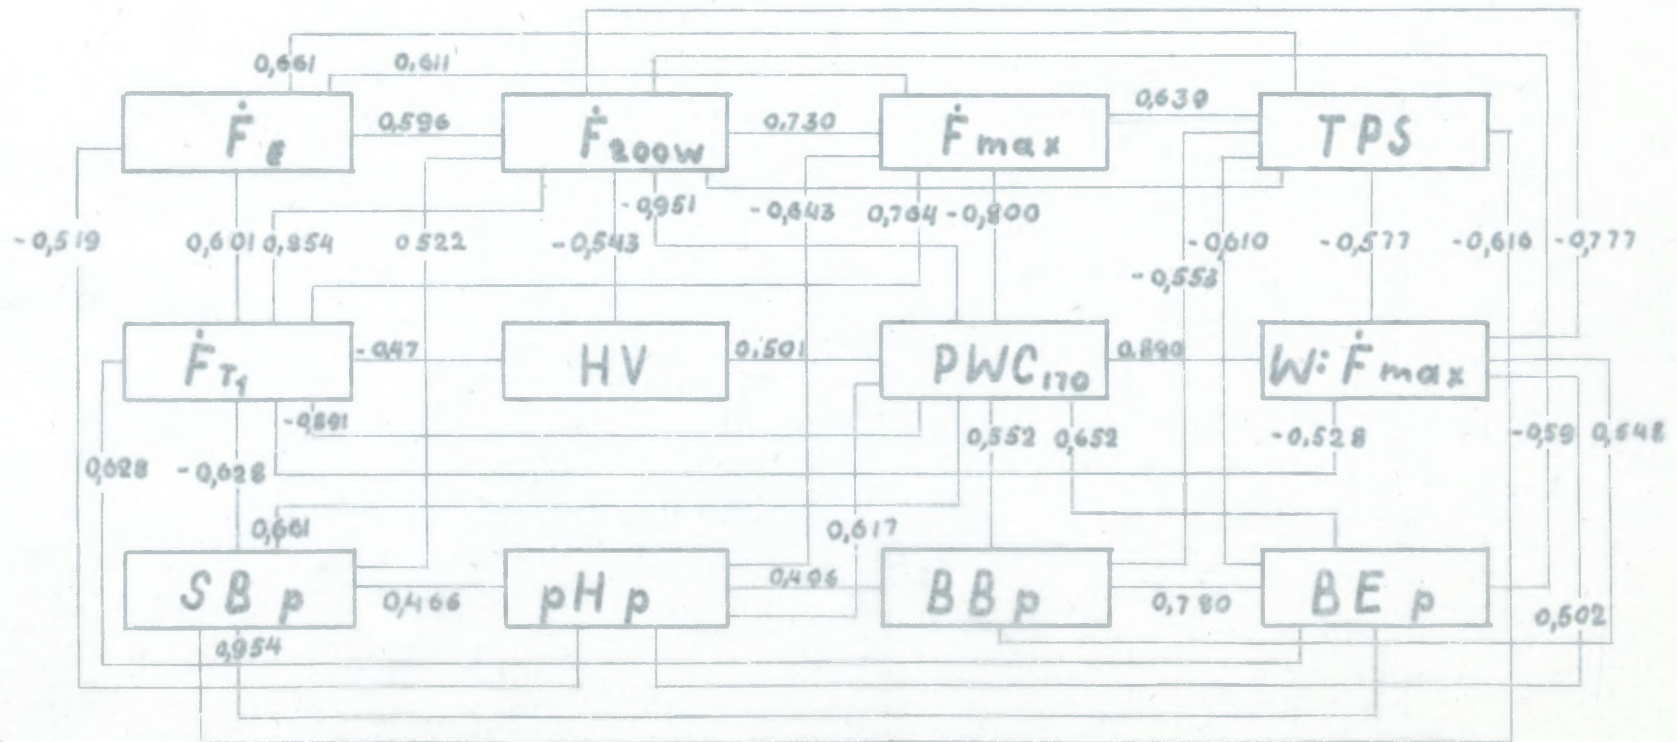 0,661 0,611
Ḟ E 0,596 Ḟ 200W 0,730 Ḟ max 0,639 TPS
-0,951 -0,643 0,764 -0,800
-0,519 0,601 0,854 0,522 -0,543 -0,610 -0,577 -0,616 -0,777
-0,553
Ḟ T1 -0,47 HV 0,501 PWC 170 0,890 W:Ḟ max
-0,891
0,552 0,652 -0,528 -0,59 0,548
0,628 -0,628
0,661 0,617
SB p 0,466 pH p 0,496 BB p 0,780 BE p
0,502
0,954